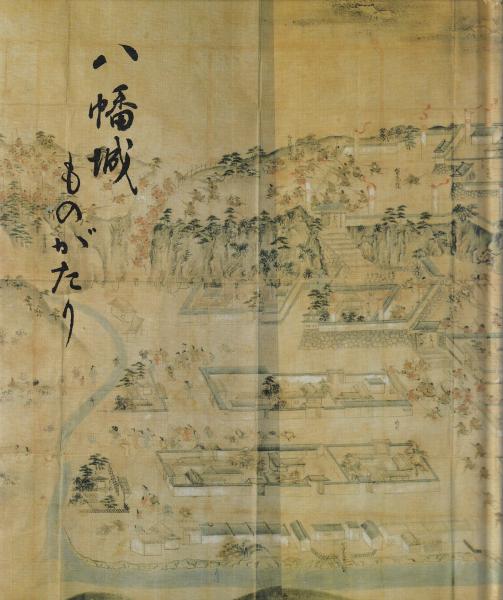 八幡城
ものがたり